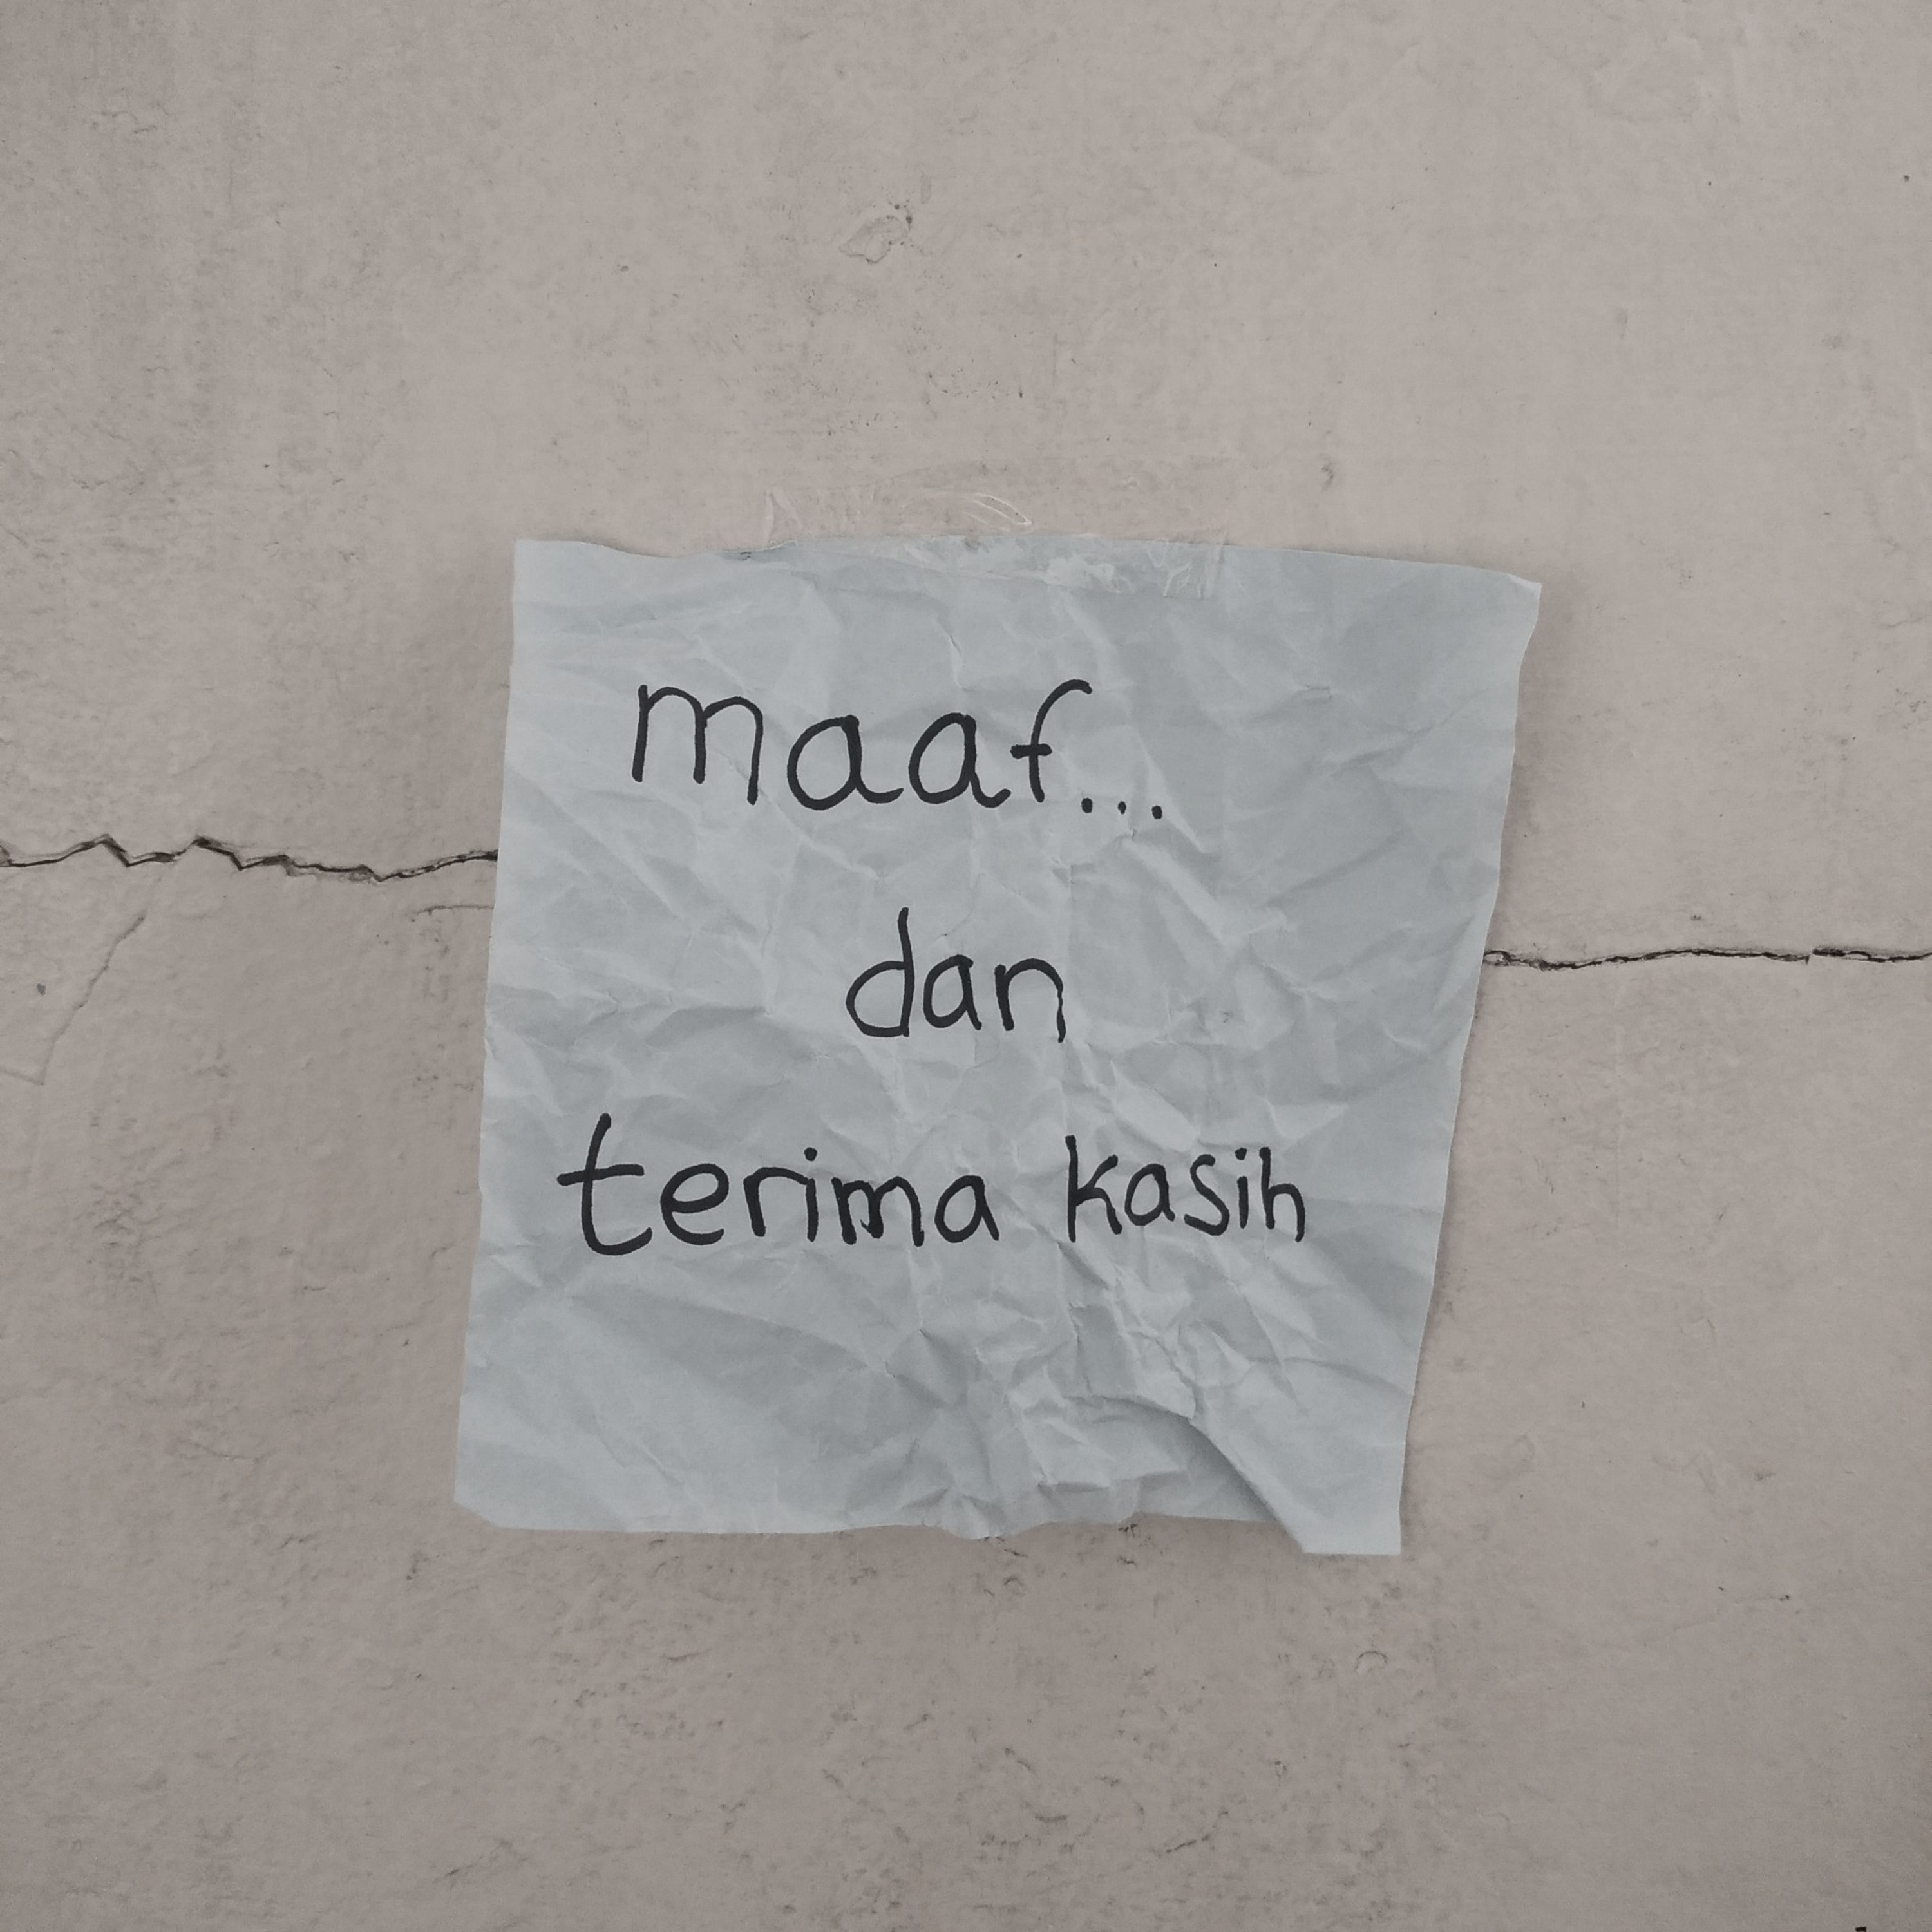 maaf...
dan
terima kasih